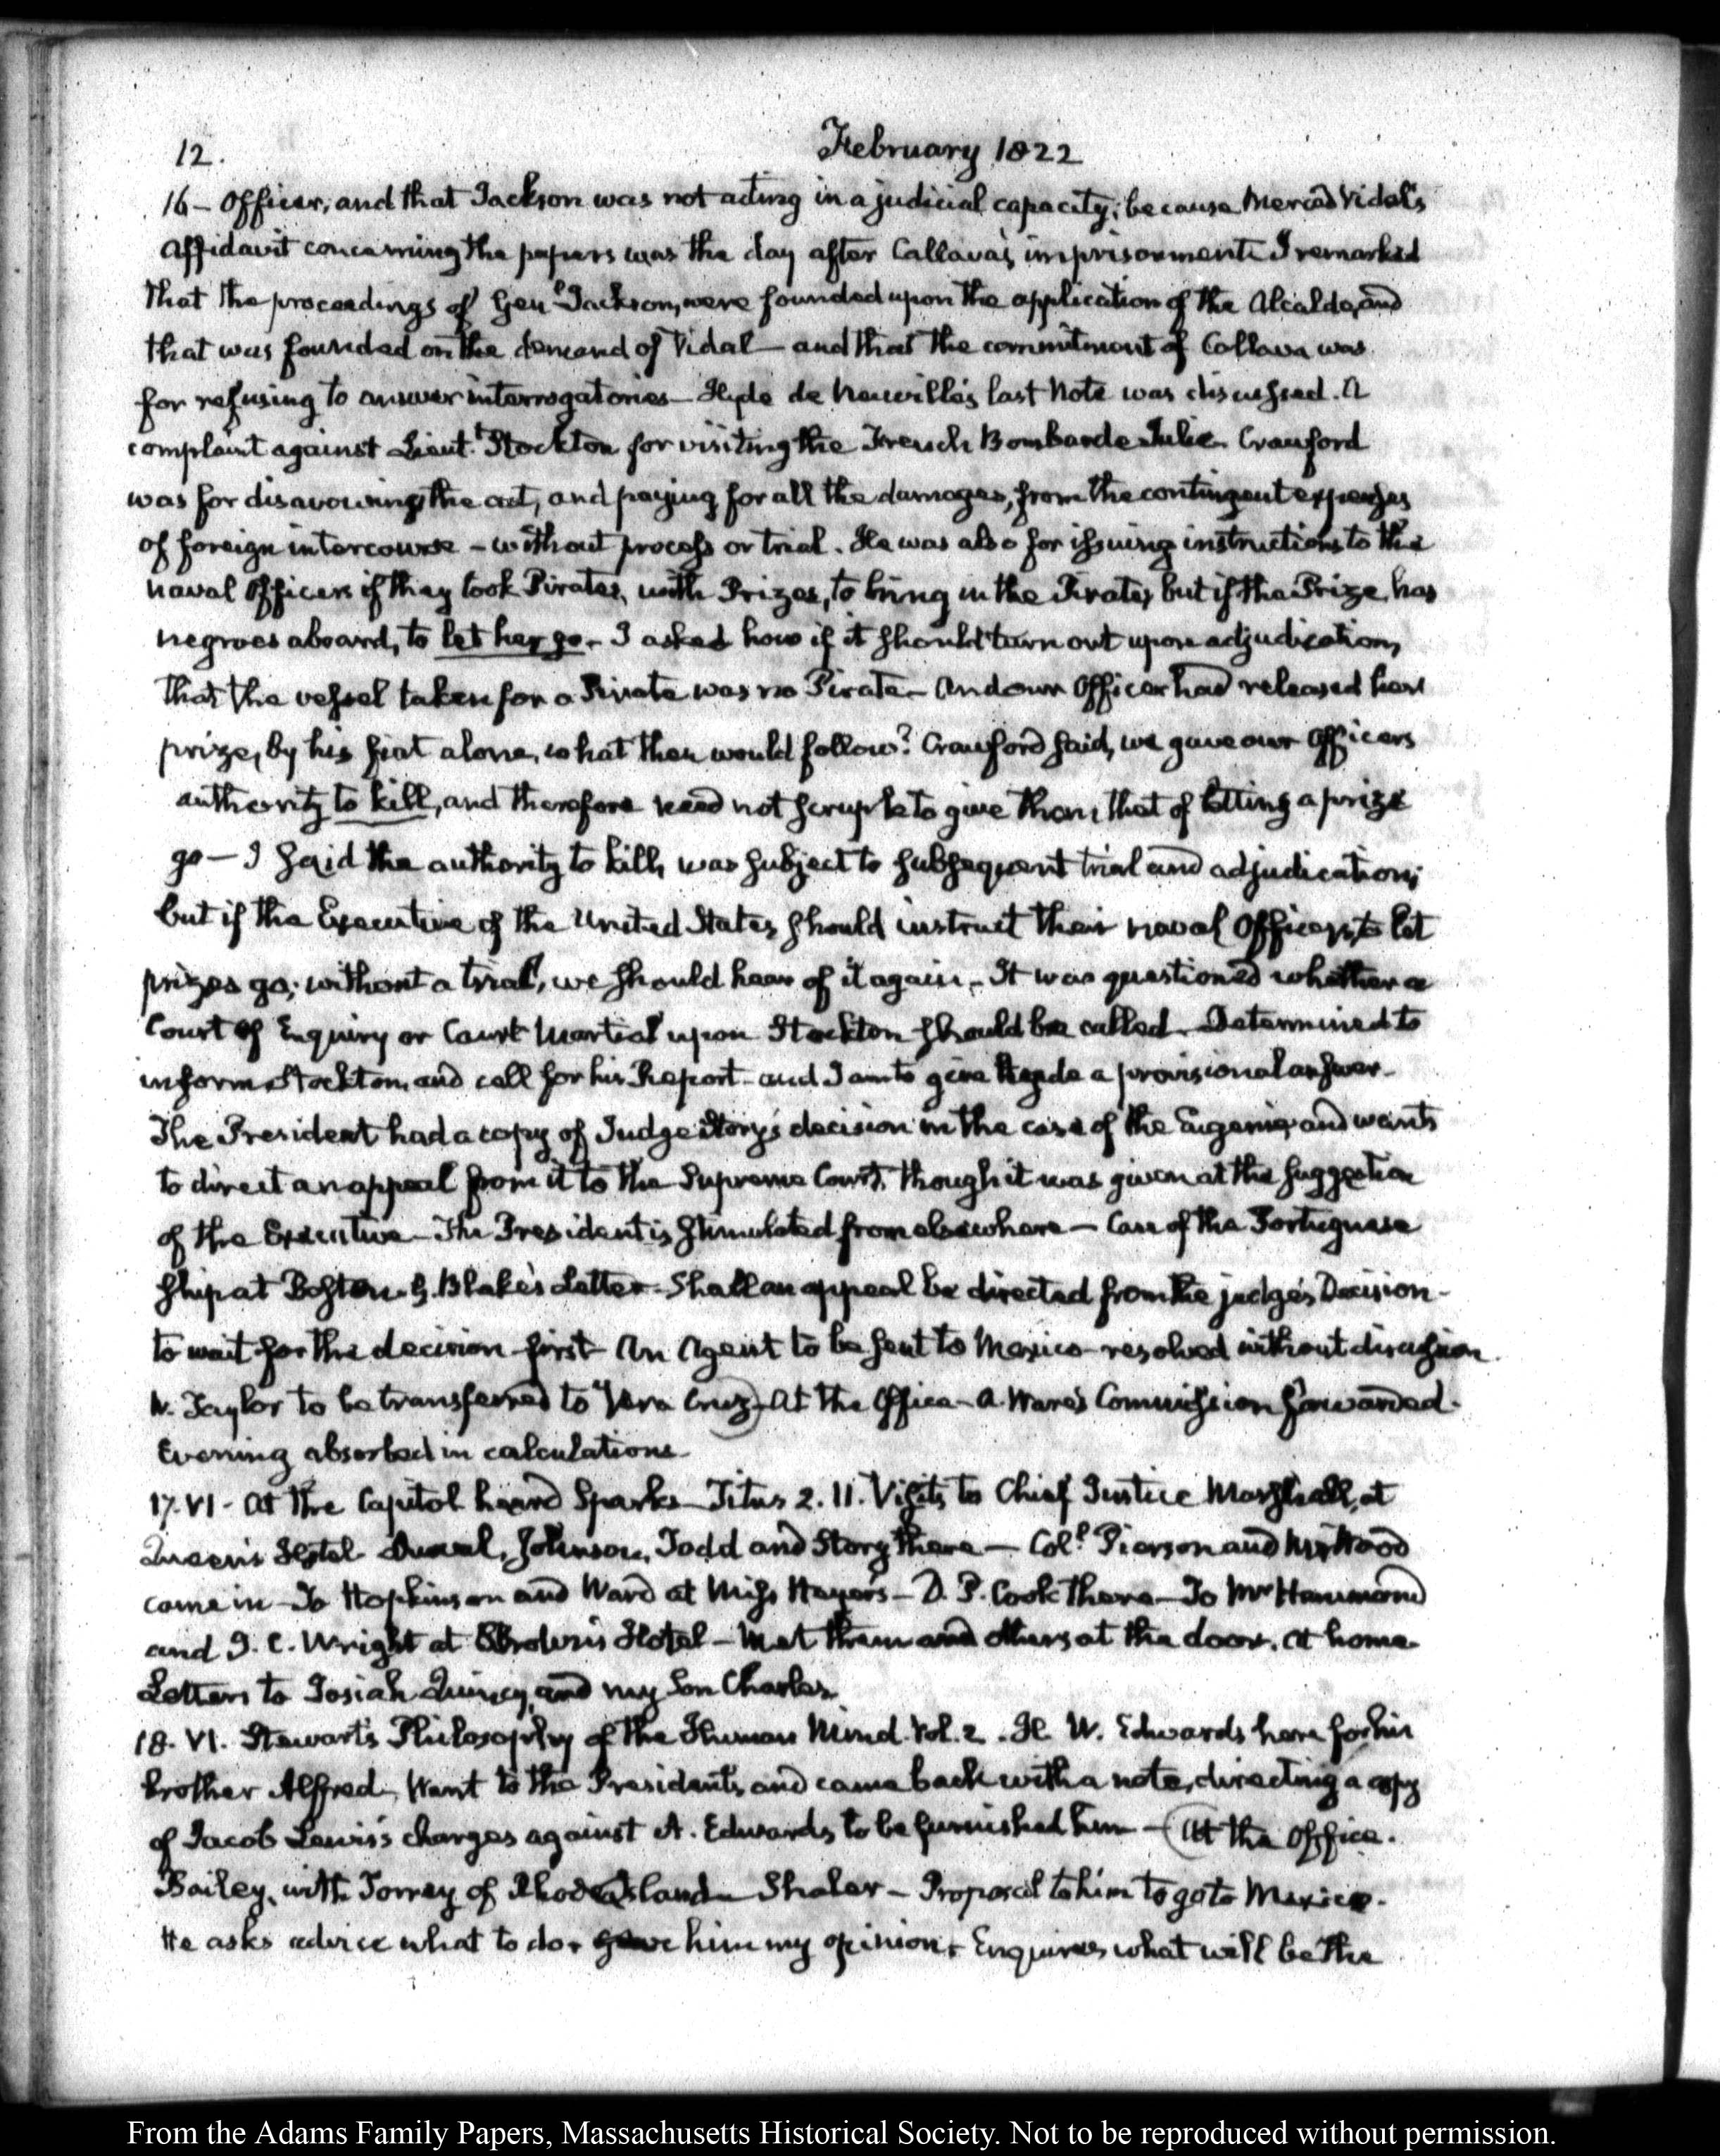 12.
February 1822
16 - Officer, and that Jackson was not acting in a judicial capacity; because Merced Vidal's
affidavit concerning the papers was the day after Callava's imprisonment. I remarked
that the proceedings of Genl Jackson, were founded upon the application of the Alcalde, and
that was founded on the demand of Vidal - and that the commitment of Callava was
for refusing to answer interrogatories - Hyde de Neuville's last Note was discussed. A
complaint against Lieutt Stockton for visiting the French Bombarde Julie. Crawford
was for disavowing the act, and paying for all the damages, from the contingent expenses
of foreign intercourse - without process or trial. He was also for issuing instructions to the
naval Officers if they took Pirates, with Prizes, to bring in the Pirates, but if the Prize, has
negroes aboard, to let her go. I asked how if it should turn out upon adjudication,
that the vessel taken for a Pirate was no Pirate - and our Officer had released her
prize, by his fiat alone, what then would follow? Crawford said, we gave our Officers
authority to kill, and therefore need not scruple to give them, that of letting a prize
go - I said the authority to kill, was subject to subsequent trial and adjudication;
but if the Executive of the United States should instruct their naval Officers, to let
prizes go; without a trial, we should hear of it again. It was questioned whether a
Court of Enquiry or Court Martial upon Stockton should be called. Determined to
inform Stockton, and call for his Report - and I am to give Hyde a provisional answer -
The President had a copy of Judge Story's decision in the case of the Eugenie, and wants
to direct an appeal from it to the Supreme Court, though it was given at the suggestion
of the Executive - The President is stimulated from elsewhere - Case of the Portuguese
ship at Boston. G. Blake's Letter - Shall an appeal be directed from the judge's Decision -
to wait for the decision first - An Agent to be sent to Mexico - resolved without discussion.
W. Taylor to be transferred to Vera Cruz) At the Office - A. Ware's Commission forwarded.
Evening absorbed in calculations -
17. VI - At the Capitol heard Sparks - Titus 2. 11. Visits to Chief Justice Marshall, at
Queen's Hotel. Duval, Johnson, Todd and Story there - Coll Pierson and Mr Wood
came in - To Hopkinson and Ward at Miss Heyer's - D. P. Cook there - To Mr Hammond
and J. C. Wright at Brown's Hotel - Met them and others at the door. At home -
Letters to Josiah Quincy, and my Son Charles
18. VI. Stewart's Philosophy of the Human Mind. Vol. 2. H. W. Edwards here for his
brother Alfred. Went to the President's, and came back with a note, directing a copy
of Jacob Lewis's charges against A. Edwards, to be furnished him - (At the Office.
Bailey, with Torrey of Rhode Island - Shaler - Proposal to him to go to Mexico.
He asks advice what to do. gave him my opinion. Enquires what will be the
From the Adams Family Papers, Massachusetts Historical Society. Not to be reproduced without permission.